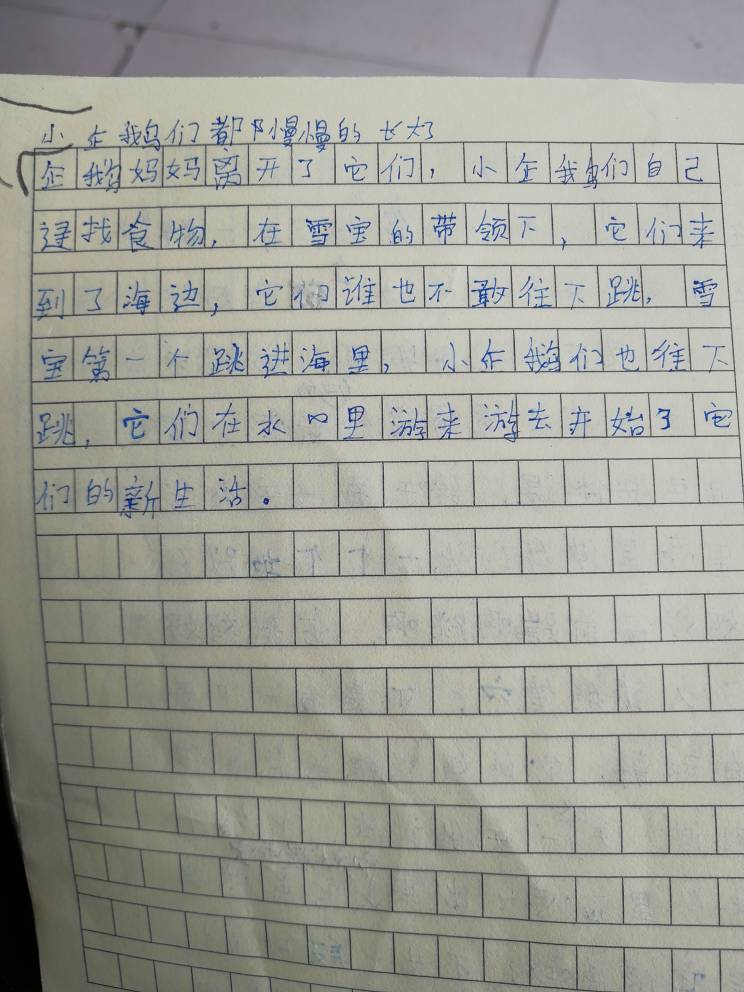 小企鹅们都慢慢的长大了
企鹅妈妈离开了它们，小企鹅们自己
寻找食物，在雪宝的带领下，它们来
到了海边，它们谁也不敢往下跳，雪
宝第一个跳进海里，小企鹅们也往下
跳，它们在水里游来游去开始了它
们的新生活。